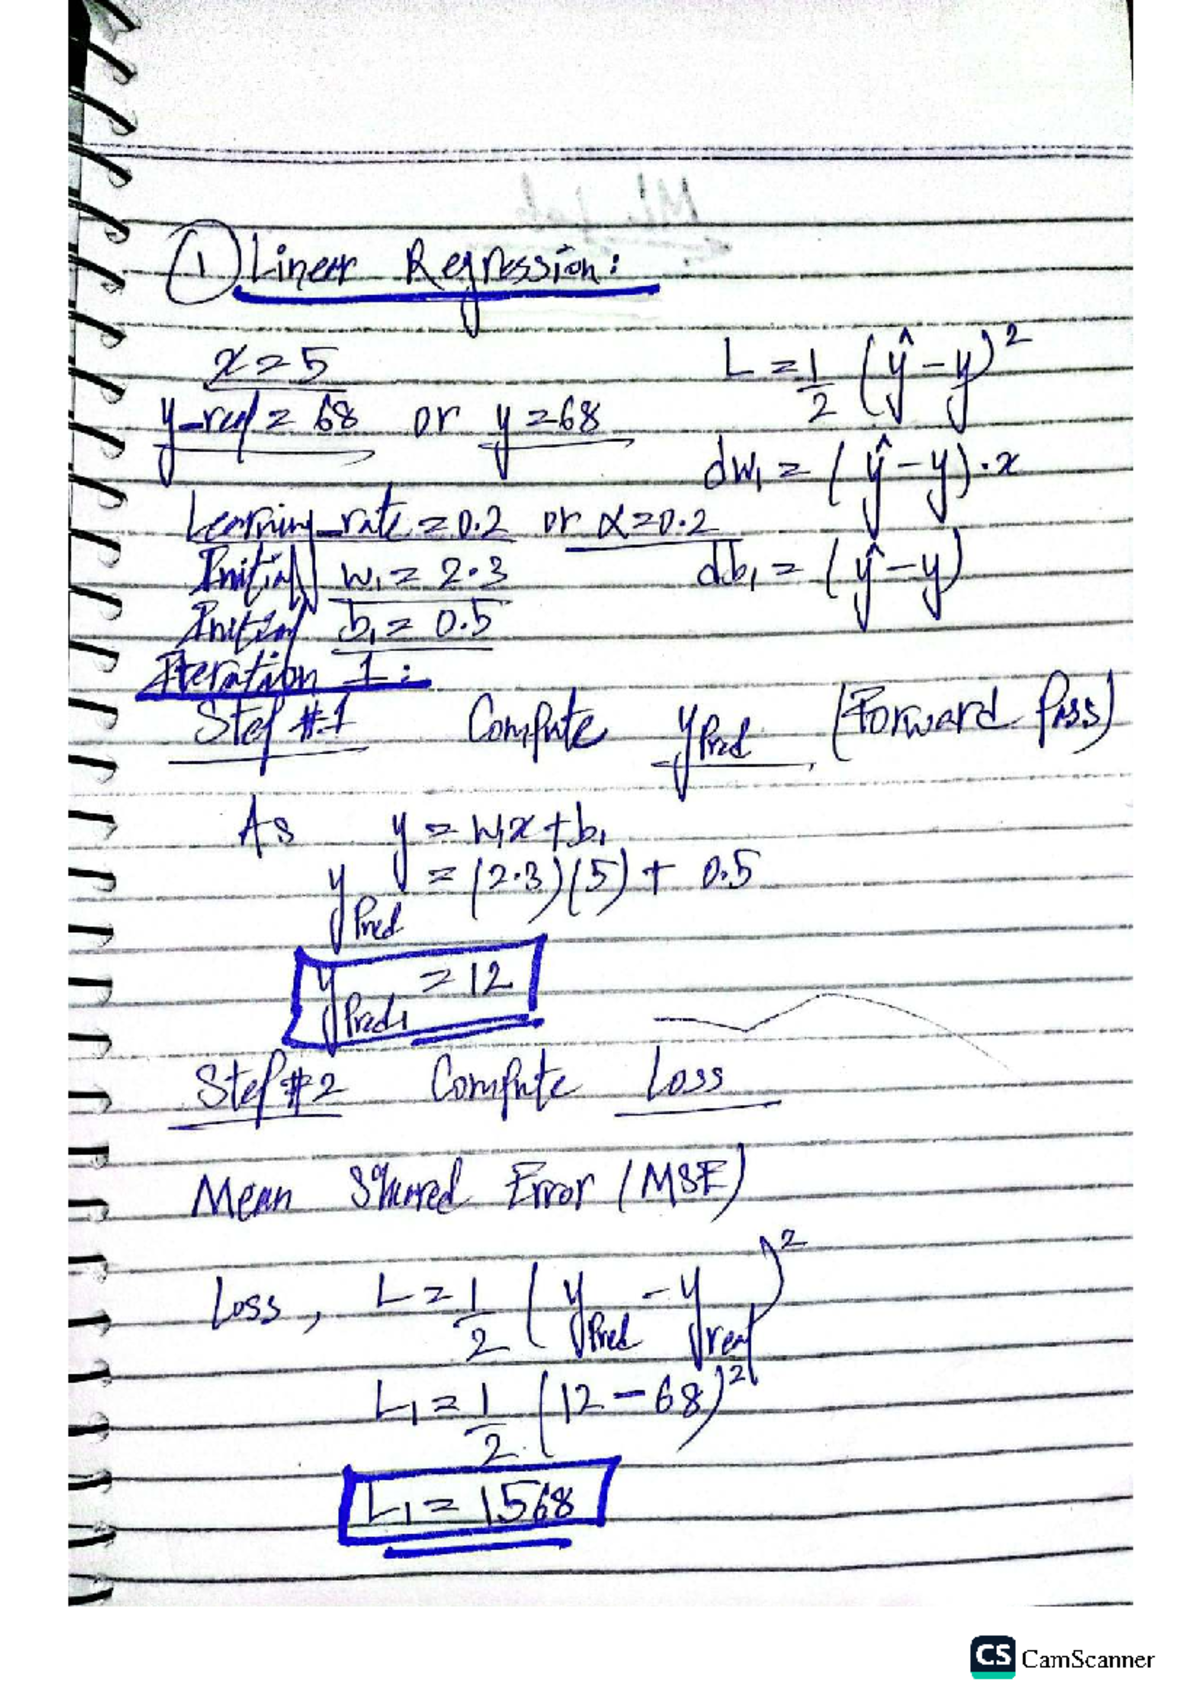 ① Linear Regression:
x = 5
y_real = 68 or y = 68
Learning_rate = 0.2 or α = 0.2
Initial w₁ = 2.3
Initial b₁ = 0.5
L = 1/2 (ŷ - y)²
dw₁ = (ŷ - y)·x
db₁ = (ŷ - y)
Iteration 1:
Step #1 Compute yPred (Forward Pass)
As y = w₁x + b₁
yPred = (2.3)(5) + 0.5
yPred₁ = 12
Step #2 Compute Loss
Mean Squared Error (MSE)
Loss, L = 1/2 (yPred - yreal)²
L₁ = 1/2 (12 - 68)²
L₁ = 1568
CS CamScanner